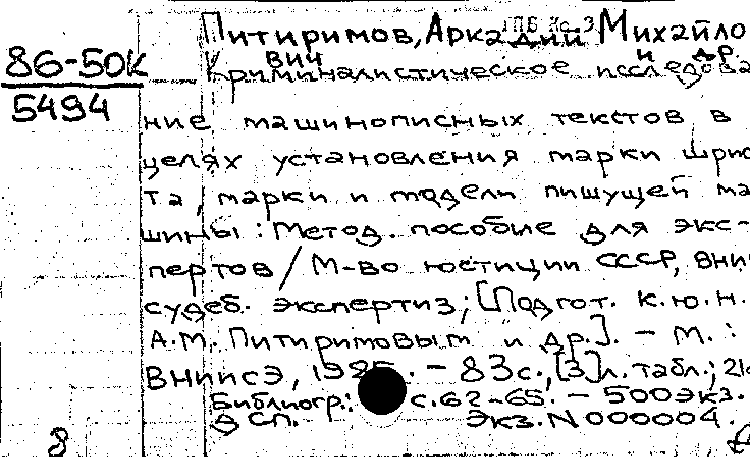 Питиримов, Аркадий Михайло
вич и др.
86-50К
5494
Криминалистическое исследова
ние машинописных текстов в
целях установления марки шриф
та, марки и модели пишущей ма
шины : Метод. пособие для экс-
пертов / М-во юстиции СССР, ВНИИ
судеб. экспертиз; [Подгот. к.ю.н.
А.М. Питиримовым и др.]. - М. :
ВНИИСЭ, 1985. - 83с., [3]л. табл.;
Библиогр.: с.62-65. - 500экз.
ДСП. Экз. N 000004.
8